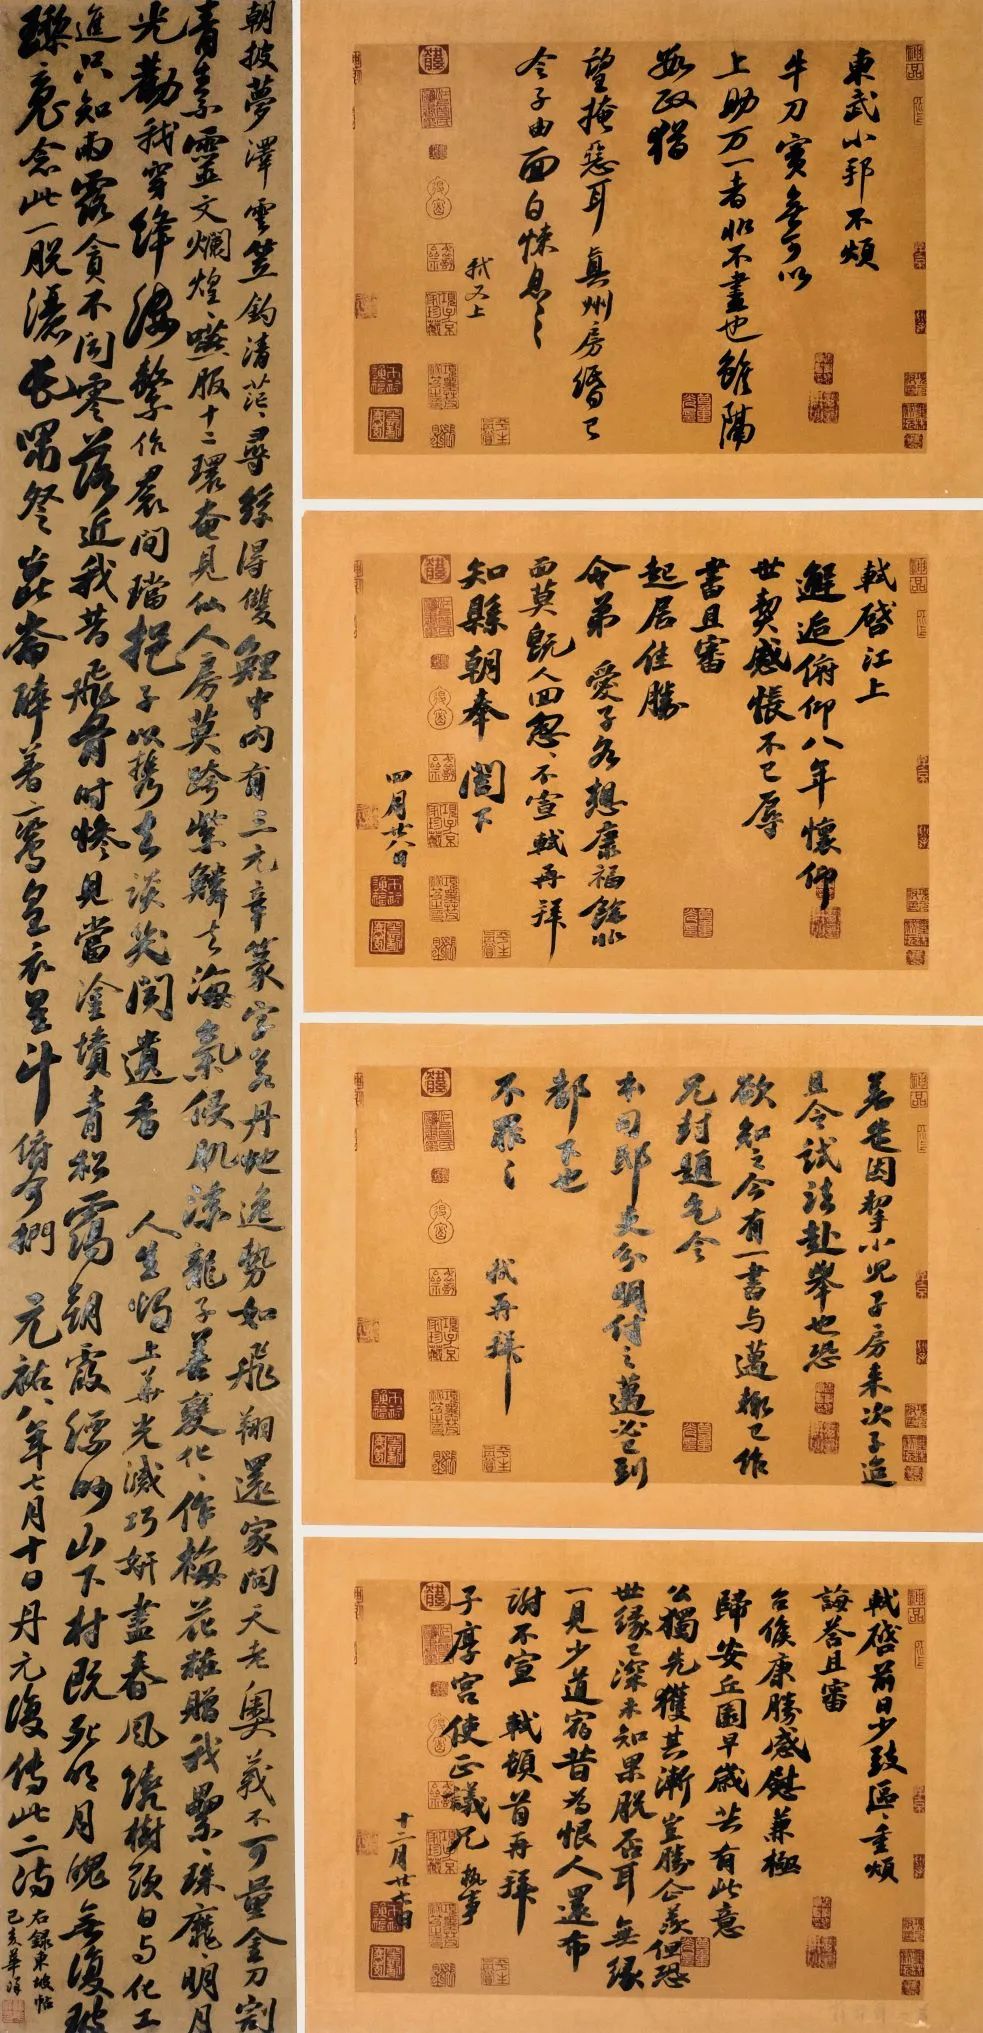 東武小邦不煩
牛刀實無可以
上助万一者非不盡也雖隔
數政猶
望掩惡耳真州房緡已
令子由面白悚息〻
軾又上
軾啓江上
邂逅俯仰八年懷仰
世契感悵不已辱
書且審
起居佳勝
令弟愛子各想康福餘非
面莫既人回怱〻不宣軾再拜
知縣朝奉閣下
四月廿八日
若老因挈小兒子房來次子迨
且令試法赴舉也恐
欲知之今有一書与邁輒已作
兄封題乞令
本司邸吏分明付之邁必已到
都下也
不罪〻
軾再拜
軾啓前日少致區〻重煩
誨荅且審
台候康勝感慰兼極
歸安丘園早歲共有此意
公獨先獲其漸豈勝企羨但恐
世緣已深未知果脫否耳無緣
一見少道宿昔為恨人還布
謝不宣軾頓首再拜
子厚宮使正議兄執事
十二月廿六日
朝披夢澤雲笠釣清茫〻尋絲得雙鯉中內有三元章篆字若丹虵逸勢如飛翔還家問天老奧義不可量金刀割
青素靈文爛煌〻嚥服十二環奄見仙人房莫跨紫鱗去海氣侵肌涼龍子善變化〻作梅花糚贈我纍〻珠靡〻明月
光勸我穿絳縷繫作裙間璫挹子以攜去談笑聞遺香人生燭上華光滅巧妍盡春風繞樹頭日与化工
進只知雨露貪不聞零落近我昔飛骨時慘見當塗墳青松靄朝霞縹緲山下村既死明月魄無復玻
瓈魂念此一脫灑長嘯祭崑崙醉著鸞皇衣星斗俯可捫元祐八年七月十日丹元復傳此二詩
右錄東坡帖
己亥華